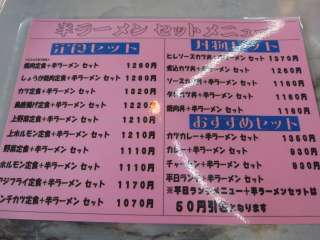 半ラーメン セットメニュー
定食セット
焼肉定食+半ラーメン セット 1260円
しょうが焼定食+半ラーメン セット 1260円
カツ定食+半ラーメン セット 1210円
鳥唐揚げ定食+半ラーメン セット 1210円
上野菜定食+半ラーメン セット 1210円
上ホルモン定食+半ラーメン セット 1210円
野菜定食+半ラーメン セット 1110円
ホルモン定食+半ラーメン セット 1110円
アジフライ定食+半ラーメン セット 1170円
メンチカツ定食+半ラーメン セット 1070円
丼物セット
ヒレソースカツ丼+半ラーメン セット 1370円
煮込カツ丼+半ラーメン セット
ソースカツ丼+半ラーメン セット
タレカツ丼+半ラーメン セット 1160円
焼肉丼+半ラーメン セット 1160円
おすすめセット
カツカレー+半ラーメン セット 1350円
カレー+半ラーメン セット 930円
チャーハン+半ラーメン セット 930円
平日ランチ+半ラーメン セット
※平日ランチメニュー+半ラーメンセットは
50円引きとなります